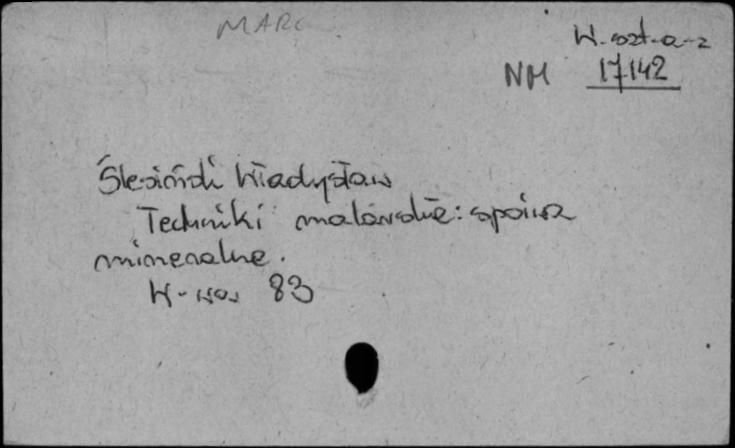 MARC
W-szt-a-z
NM 17142
Ślesiński Władysław
Techniki malarskie: spoiwa
mineralne.
W-wa 83